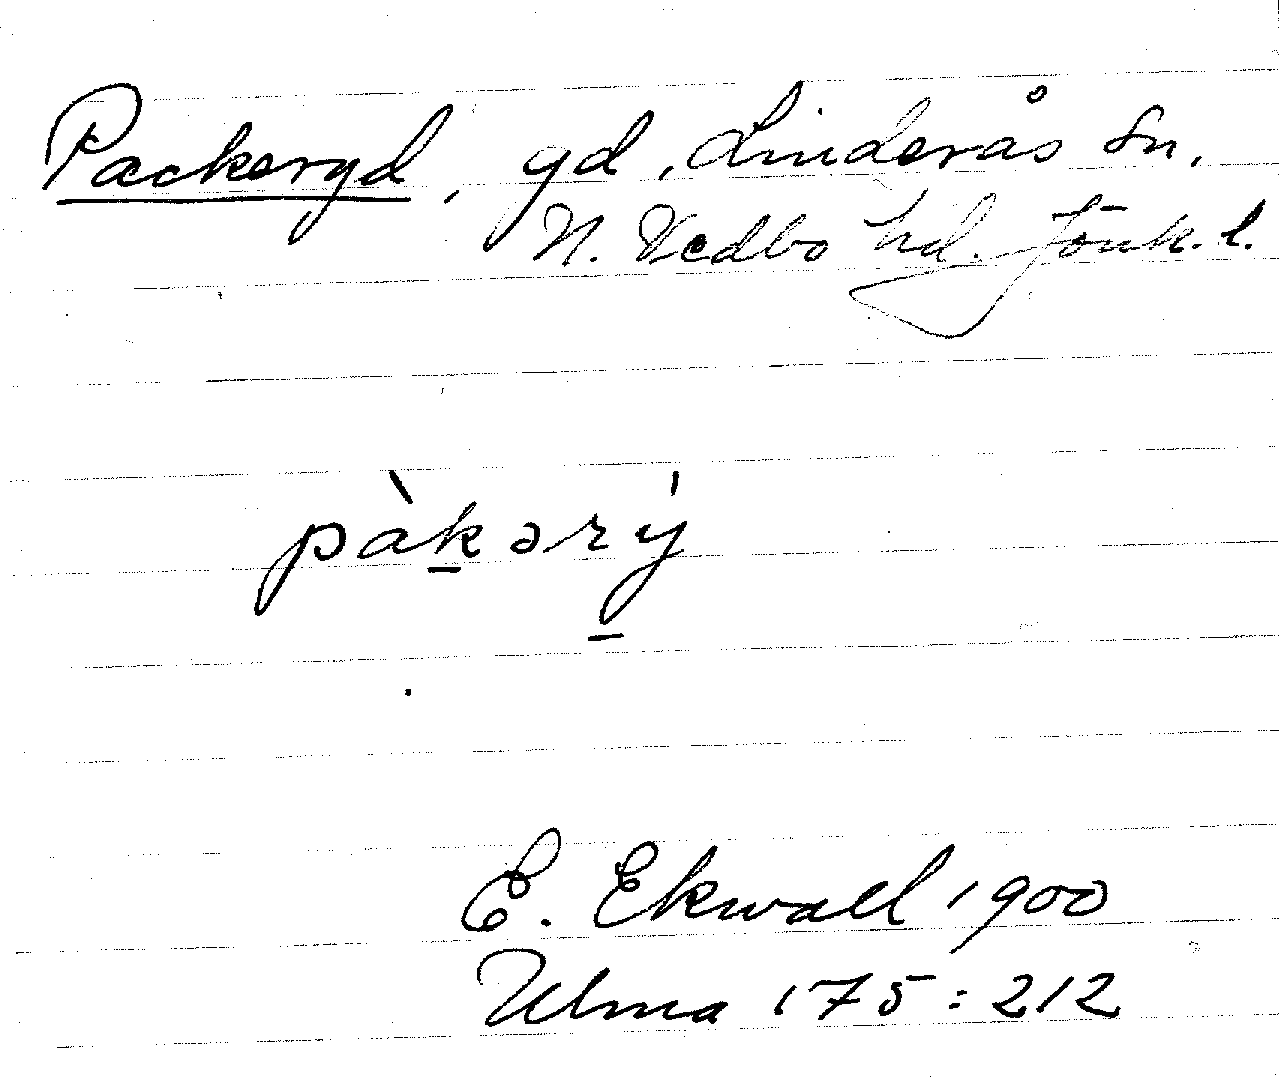 Packeryd, gd, Linderås sn.
N. Vedbo hd. Jönk. l.
pàkərý
E. Ekwall 1900
Ulma 175:212